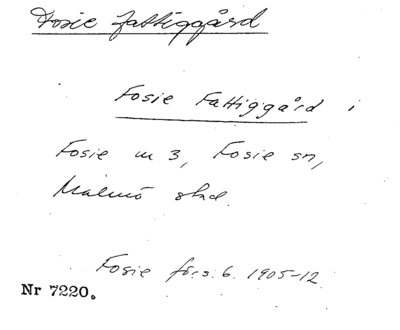 Fosie fattiggård
Fosie Fattiggård i
Fosie m 3, Fosie sn,
Malmö stad.
Fosie förs. 6. 1905-12
Nr 7220.